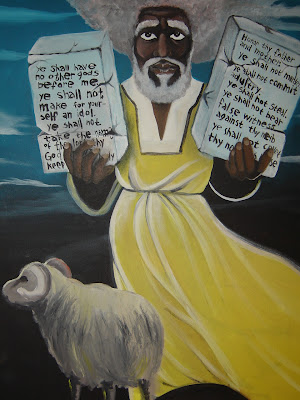 ye shall have
no other gods
before me.
ye shall not
make for your-
self an idol.
ye shall not
take the name
of the lord thy
God
keep
Honor thy father
and mother.
ye shall not murder
ye shall not commit
adultery.
ye shall not steal.
ye shall not bear
false witness
against thy neib
ye shall not covet
thy